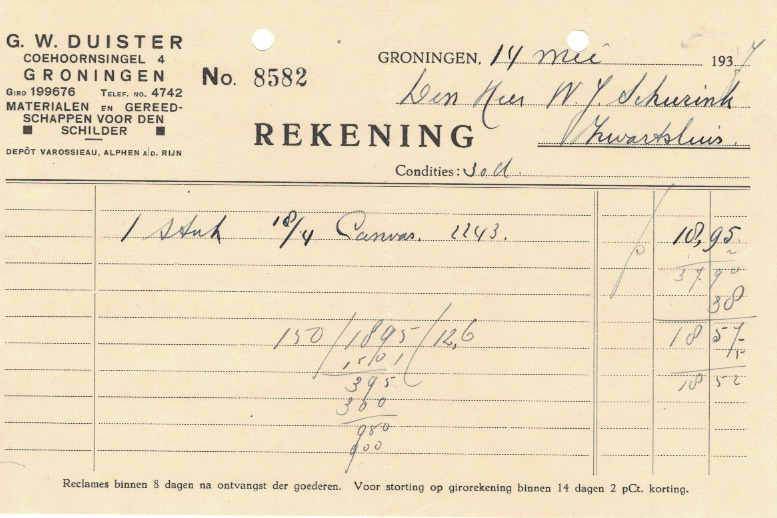 G. W. DUISTER
COEHOORNSINGEL 4
GRONINGEN
GIRO 199676 TELEF. NO. 4742
MATERIALEN EN GEREED-
SCHAPPEN VOOR DEN
SCHILDER
DEPÔT VAROSSIEAU, ALPHEN A/D. RIJN
No. 8582
GRONINGEN, 14 mei 1937
Den Heer W J. Schurink
Zwartsluis.
REKENING
Condities: 30 d.
1 stuk 18/4 Canvas. 2243. 18,95
2
37 90
38
150/1895/12,6 18 57
395 18 52
300
950
900
Reclames binnen 8 dagen na ontvangst der goederen. Voor storting op girorekening binnen 14 dagen 2 pCt. korting.